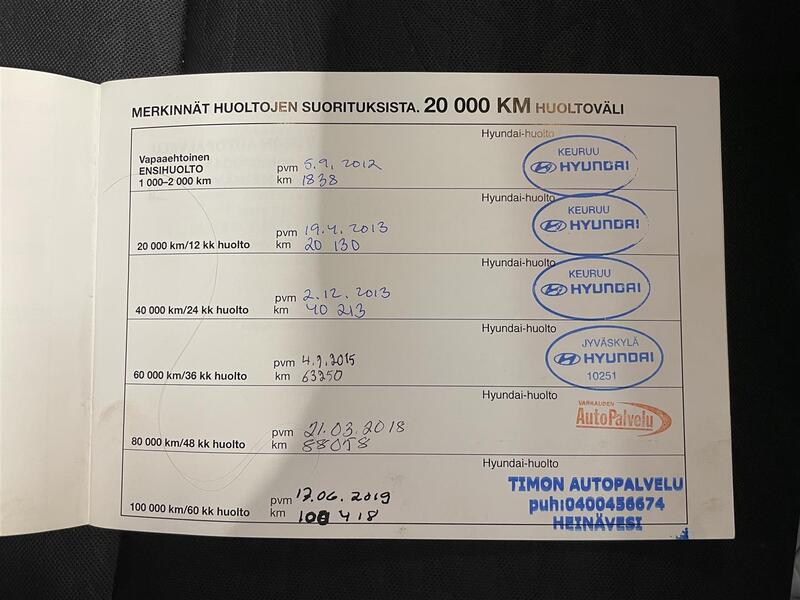 MERKINNÄT HUOLTOJEN SUORITUKSISTA. 20 000 KM HUOLTOVÄLI
Hyundai-huolto
Vapaaehtoinen
ENSIHUOLTO
1 000–2 000 km
pvm 5.9.2012
km 1838
KEURUU
HYUNDAI
Hyundai-huolto
20 000 km/12 kk huolto
pvm 19.4.2013
km 20 130
KEURUU
HYUNDAI
Hyundai-huolto
40 000 km/24 kk huolto
pvm 2.12.2013
km 40 213
KEURUU
HYUNDAI
Hyundai-huolto
60 000 km/36 kk huolto
pvm 4.9.2015
km 63250
JYVÄSKYLÄ
HYUNDAI
10251
Hyundai-huolto
80 000 km/48 kk huolto
pvm 21.03.2018
km 88058
VARKAUDEN
AutoPalvelu
Hyundai-huolto
100 000 km/60 kk huolto
pvm 17.06.2019
km 100 418
TIMON AUTOPALVELU
puh:0400456674
HEINÄVESI